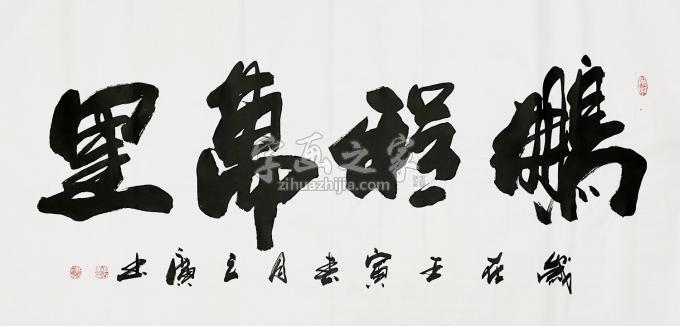 鵬程萬里
歲在壬寅春月立廣书
字画之家
zihuazhijia.com